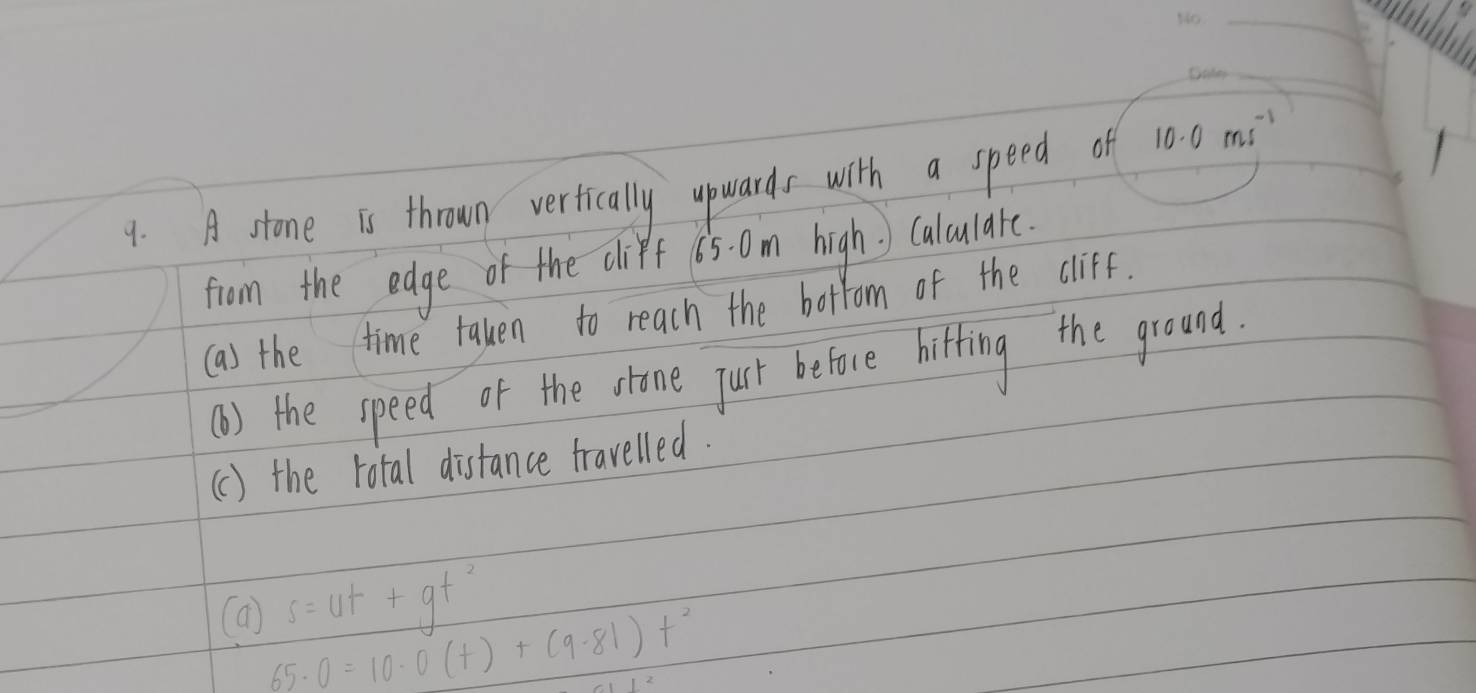 No.
Date
9. A stone is thrown vertically upwards with a speed of 10.0 ms⁻¹
from the edge of the cliff 65.0m high. Calculate.
(a) the time taken to reach the bottom of the cliff.
(b) the speed of the stone just before hitting the ground.
(c) the total distance travelled.
(a) s = ut + gt²
65.0 = 10.0 (t) + (9.81) t²